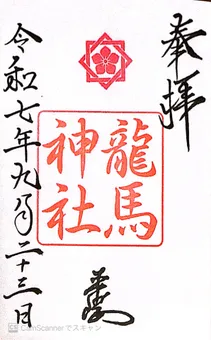 奉拝
龍馬
神社
令和七年九月二十三日
CS CamScannerでスキャン